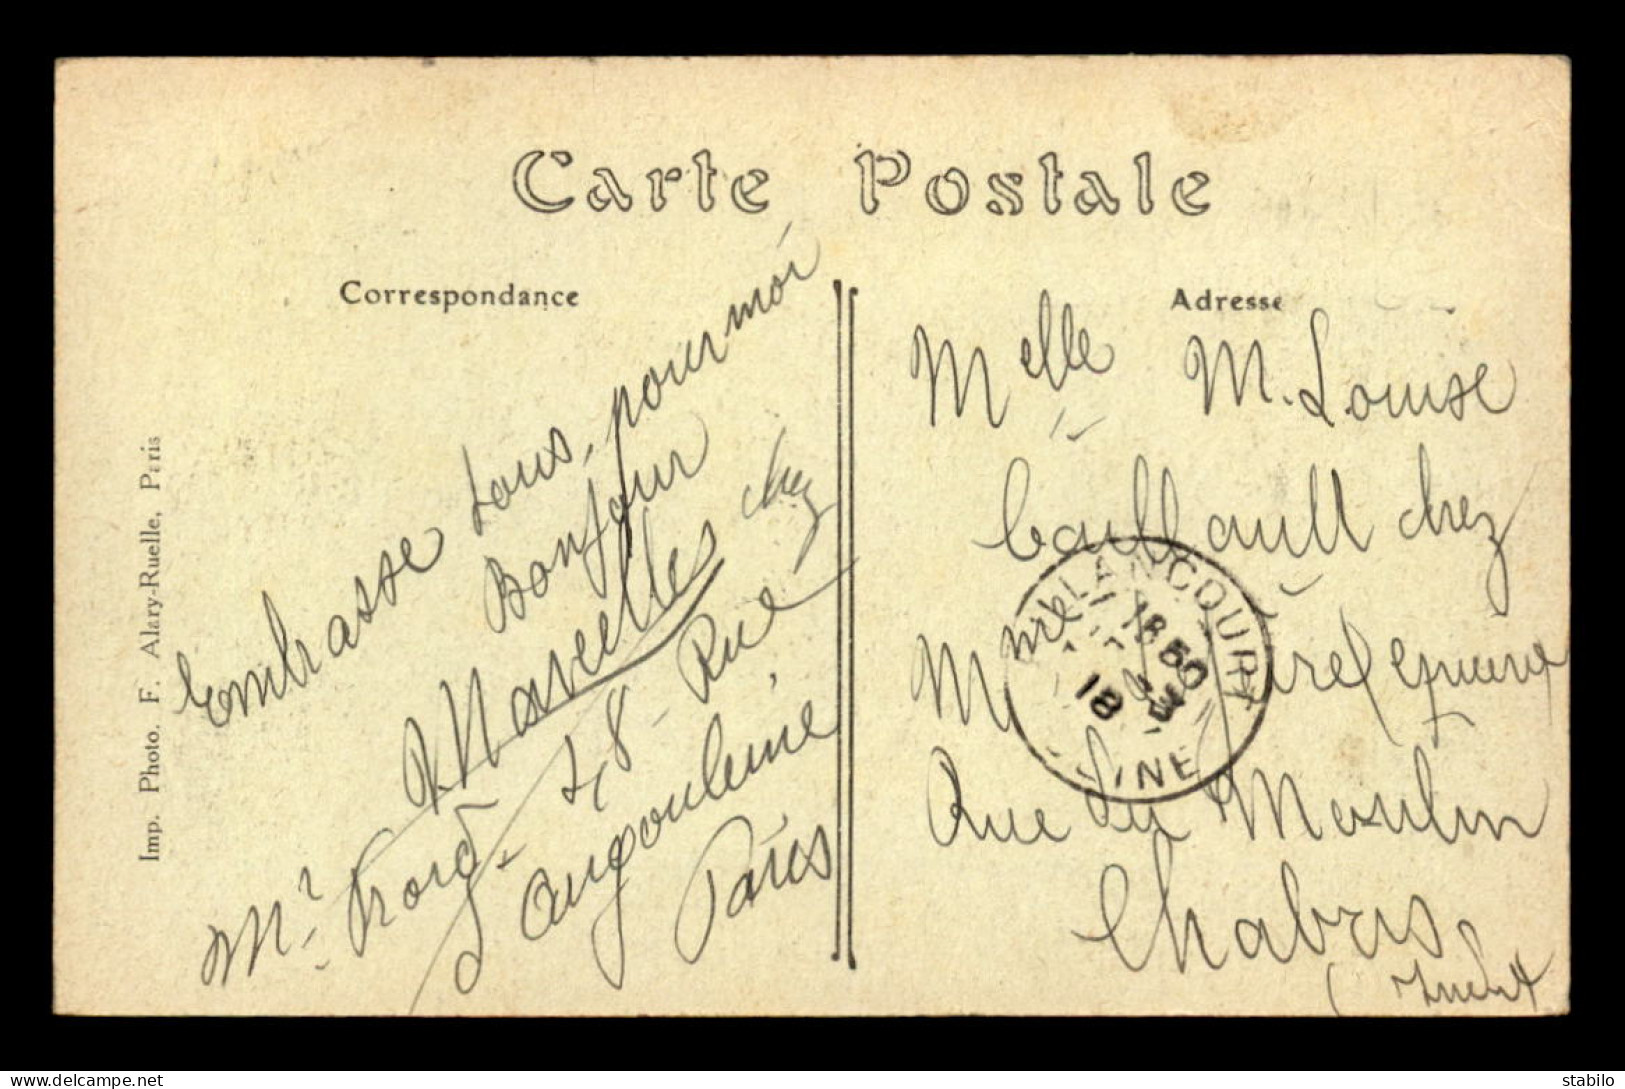 Carte Postale
Correspondance
Embrasse tous, pour moi
Bonjour
Marcelle chez
Mr
48 Rue
Angoulème
Paris
Imp. Photo. F. Alary-Ruelle, Paris
Adresse
Melle M. Louise
chez
Mme
Rue du Moulin
Chabris
(Indre
BILLANCOURT
18 50
18
INE
delcampe.net
stabilo